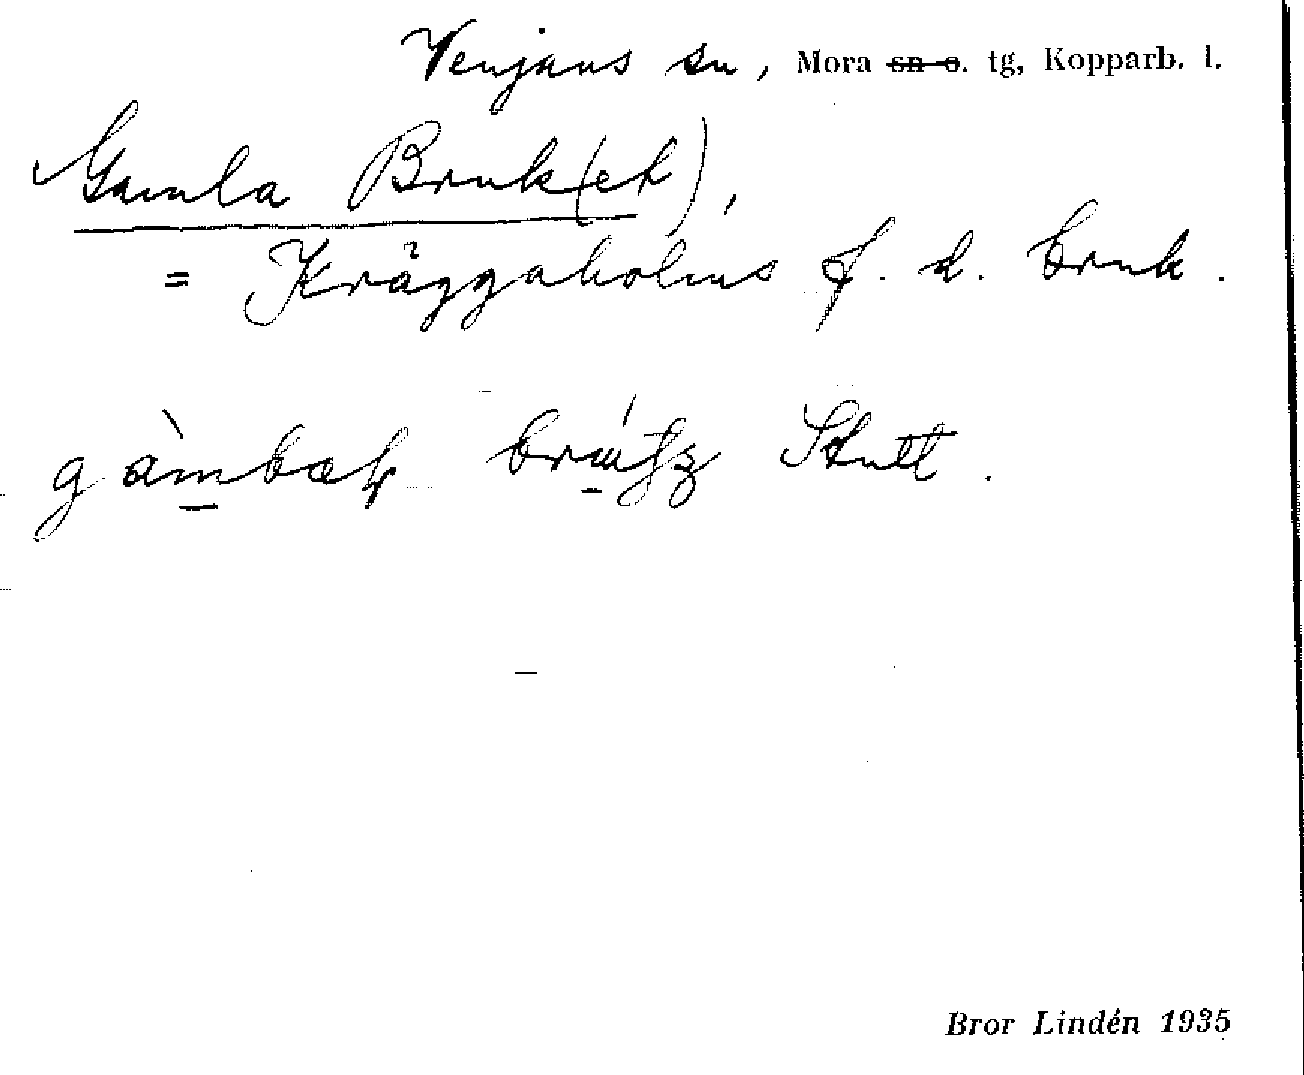 Venjans sn, Mora sn o. tg, Kopparb. l.
Gamla Bruk(et),
= Kråggaholms f. d. bruk.
Stutt.
Bror Lindén 1935